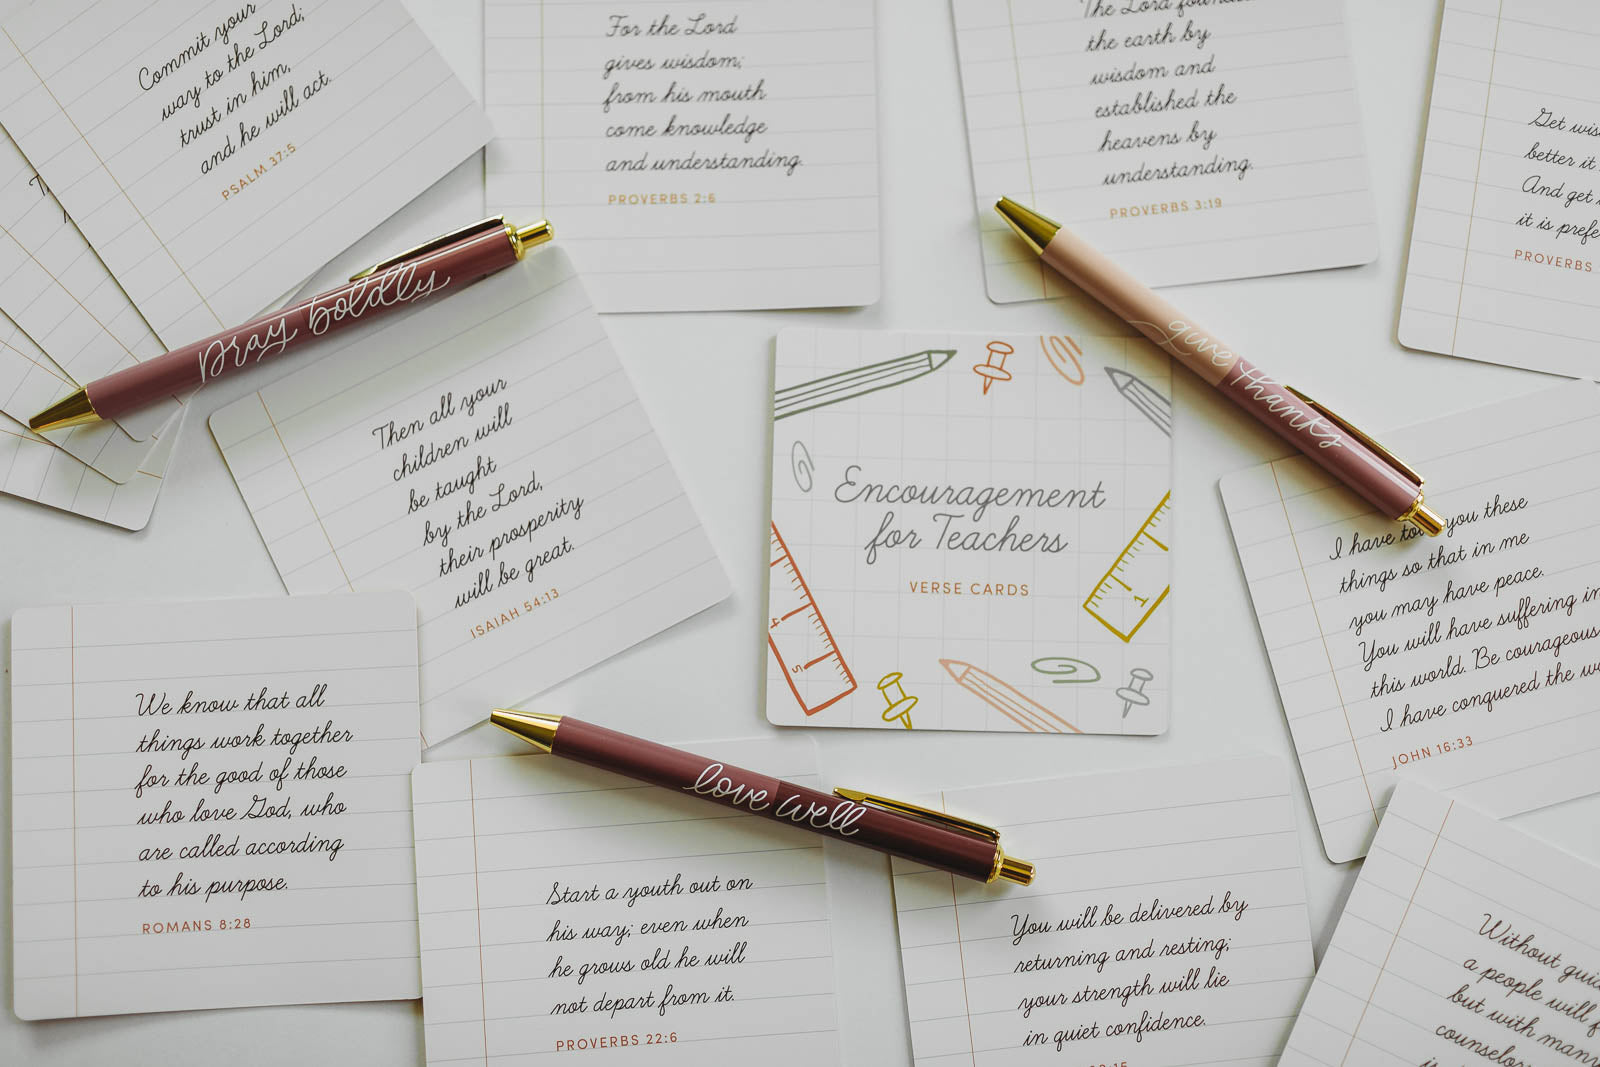 Commit your
way to the Lord;
trust in him,
and he will act.
PSALM 37:5
For the Lord
gives wisdom;
from his mouth
come knowledge
and understanding.
PROVERBS 2:6
The Lord
the earth by
wisdom and
established the
heavens by
understanding.
PROVERBS 3:19
Get
better it
And get
it is
PROVERBS
pray boldly
give thanks
Then all your
children will
be taught
by the Lord,
their prosperity
will be great.
ISAIAH 54:13
Encouragement
for Teachers
VERSE CARDS
1
4
5
I have you these
things so that in me
you may have peace.
You will have suffering in
this world. Be courageous
I have conquered the
JOHN 16:33
We know that all
things work together
for the good of those
who love God, who
are called according
to his purpose.
ROMANS 8:28
love well
Start a youth out on
his way; even when
he grows old he will
not depart from it.
PROVERBS 22:6
You will be delivered by
returning and resting;
your strength will lie
in quiet confidence.
Without
a people will
but with many